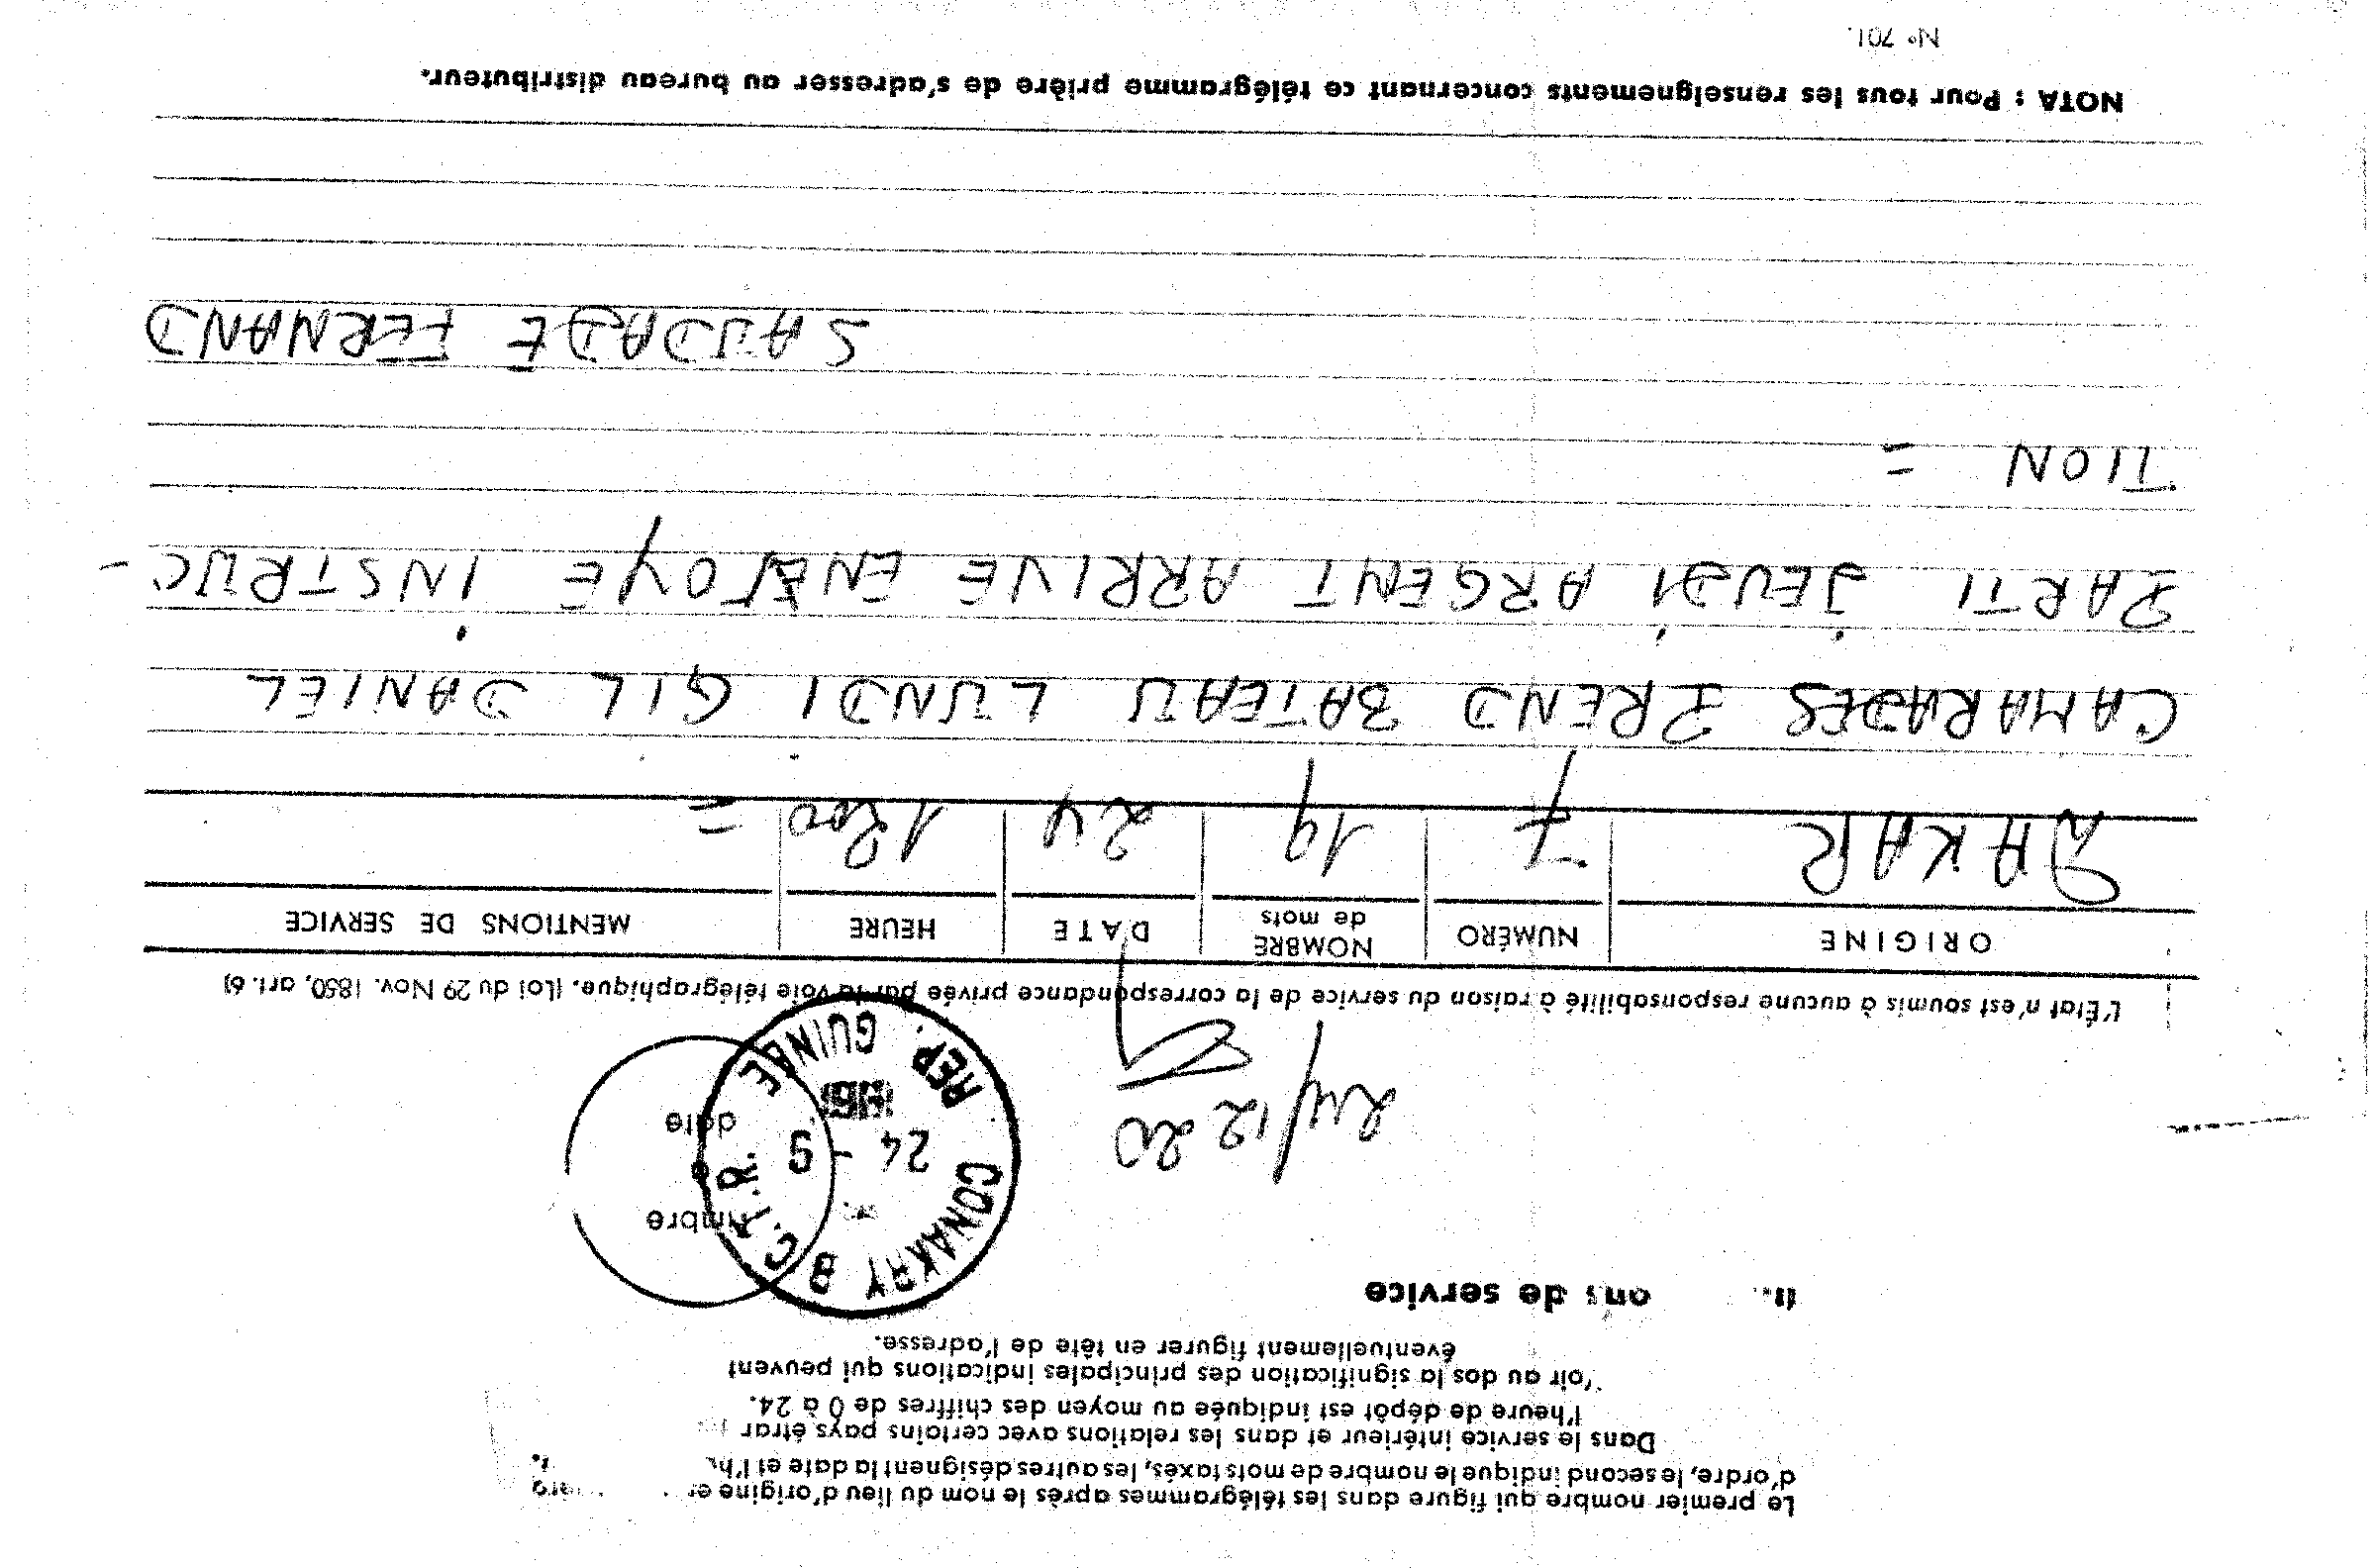 Le premier nombre qui figure dans les télégrammes après le nom du lieu d'origine
d'ordre, le second indique le nombre de mots taxés, les autres désignent la date et l'h
Dans le service intérieur et dans les relations avec certains pays étran
l'heure de dépôt est indiquée au moyen des chiffres de 0 à 24.
'oir au dos la signification des principales indications qui peuvent
éventuellement figurer en tête de l'adresse.
ons de service
timbre
à date
CONAKRY B C.T.R.
24 - 9
REP. GUINÉE
24/12 20
L'État n'est soumis à aucune responsabilité à raison du service de la correspondance privée par la voie télégraphique. (Loi du 29 Nov. 1850, art. 6)
ORIGINE NUMÉRO NOMBRE de mots DATE HEURE MENTIONS DE SERVICE
DAKAR 7 19 24 1200 =
CAMARADES PREND BATEAU LUNDI GIL DANIEL
PARTI JEUDI ARGENT ARRIVE ENVOYE INSTRUC-
TION =
SAUDADE FERNAND
NOTA : Pour tous les renseignements concernant ce télégramme prière de s'adresser au bureau distributeur.
N° 701.